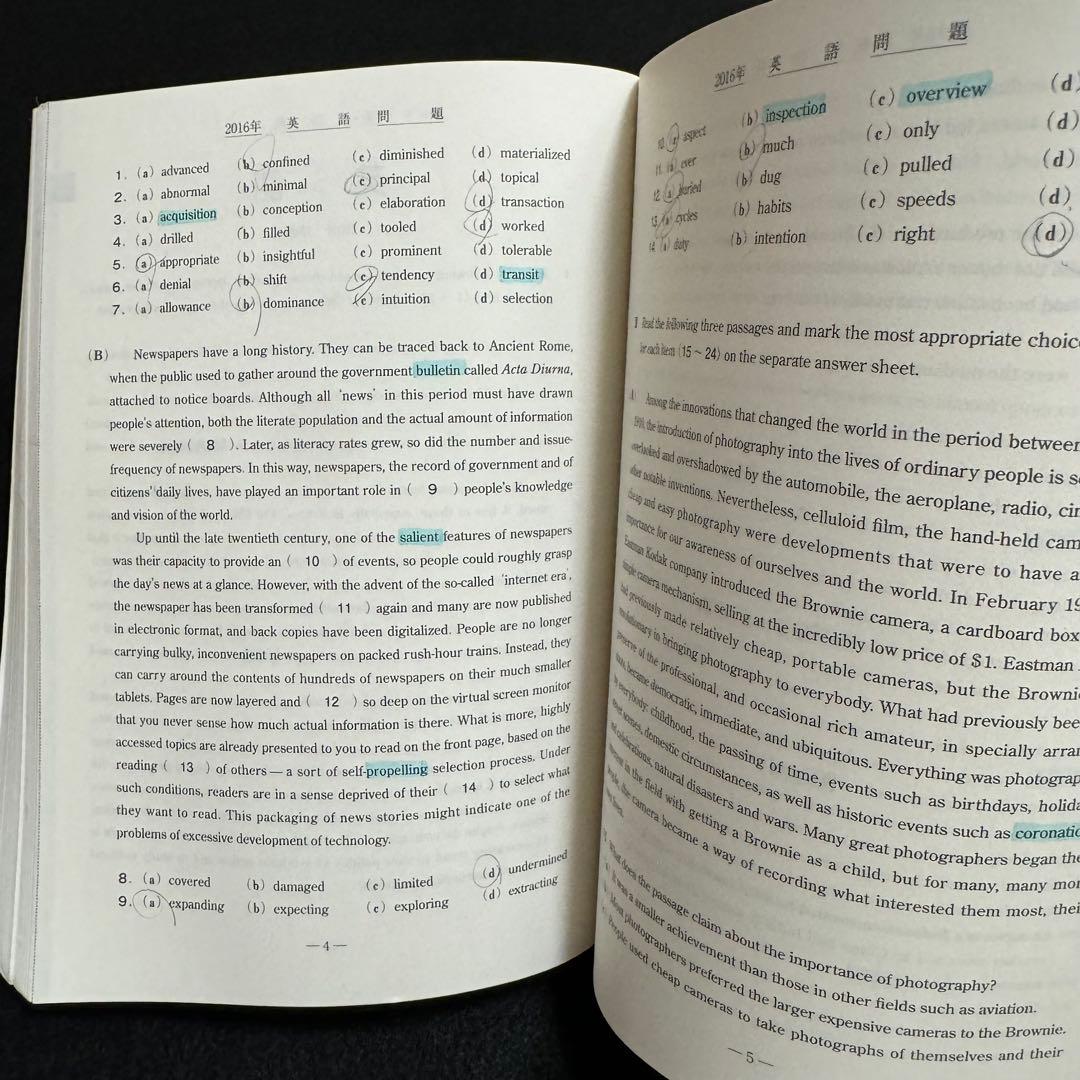 2016年 英 語 問 題
1. (a) advanced (b) confined (c) diminished (d) materialized
2. (a) abnormal (b) minimal (c) principal (d) topical
3. (a) acquisition (b) conception (c) elaboration (d) transaction
4. (a) drilled (b) filled (c) tooled (d) worked
5. (a) appropriate (b) insightful (c) prominent (d) tolerable
6. (a) denial (b) shift (c) tendency (d) transit
7. (a) allowance (b) dominance (c) intuition (d) selection
(B) Newspapers have a long history. They can be traced back to Ancient Rome,
when the public used to gather around the government bulletin called Acta Diurna,
attached to notice boards. Although all 'news' in this period must have drawn
people's attention, both the literate population and the actual amount of information
were severely ( 8 ). Later, as literacy rates grew, so did the number and issue-
frequency of newspapers. In this way, newspapers, the record of government and of
citizens' daily lives, have played an important role in ( 9 ) people's knowledge
and vision of the world.
Up until the late twentieth century, one of the salient features of newspapers
was their capacity to provide an ( 10 ) of events, so people could roughly grasp
the day's news at a glance. However, with the advent of the so-called 'internet era',
the newspaper has been transformed ( 11 ) again and many are now published
in electronic format, and back copies have been digitalized. People are no longer
carrying bulky, inconvenient newspapers on packed rush-hour trains. Instead, they
can carry around the contents of hundreds of newspapers on their much smaller
tablets. Pages are now layered and ( 12 ) so deep on the virtual screen monitor
that you never sense how much actual information is there. What is more, highly
accessed topics are already presented to you to read on the front page, based on the
reading ( 13 ) of others — a sort of self-propelling selection process. Under
such conditions, readers are in a sense deprived of their ( 14 ) to select what
they want to read. This packaging of news stories might indicate one of the
problems of excessive development of technology.
8. (a) covered (b) damaged (c) limited (d) undermined
9. (a) expanding (b) expecting (c) exploring (d) extracting
— 4 —
2016年 英 語 問 題
10. (a) aspect (b) inspection (c) overview (d)
11. (a) ever (b) much (c) only (d)
12. (a) buried (b) dug (c) pulled (d)
13. (a) cycles (b) habits (c) speeds (d)
14. (a) duty (b) intention (c) right (d)
Read the following three passages and mark the most appropriate choic
for each item (15 ~ 24) on the separate answer sheet.
Among the innovations that changed the world in the period between
the introduction of photography into the lives of ordinary people is s
overlooked and overshadowed by the automobile, the aeroplane, radio, cin
other notable inventions. Nevertheless, celluloid film, the hand-held cam
cheap and easy photography were developments that were to have a
importance for our awareness of ourselves and the world. In February 19
Eastman Kodak company introduced the Brownie camera, a cardboard box
simple camera mechanism, selling at the incredibly low price of $1. Eastman
had previously made relatively cheap, portable cameras, but the Browni
revolutionary in bringing photography to everybody. What had previously bee
preserve of the professional, and occasional rich amateur, in specially arran
became democratic, immediate, and ubiquitous. Everything was photograp
by everybody: childhood, the passing of time, events such as birthdays, holida
street scenes, domestic circumstances, as well as historic events such as coronatio
celebrations, natural disasters and wars. Many great photographers began the
in the field with getting a Brownie as a child, but for many, many mor
people, the camera became a way of recording what interested them most, thei
lives.
What does the passage claim about the importance of photography?
It was a smaller achievement than those in other fields such as aviation.
Most photographers preferred the larger expensive cameras to the Brownie.
People used cheap cameras to take photographs of themselves and their
— 5 —